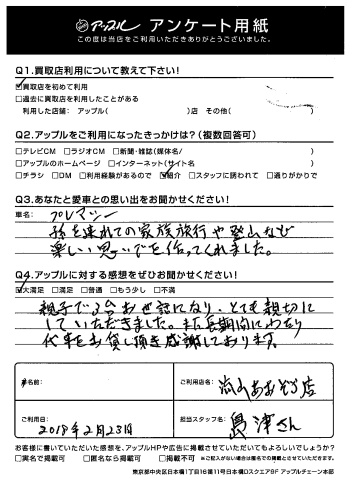 アップル アンケート用紙
この度は当店をご利用いただきありがとうございました。
Q1.買取店利用について教えて下さい!
☑買取店を初めて利用
□過去に買取店を利用したことがある
利用した店舗: アップル( )店 その他( )
Q2.アップルをご利用になったきっかけは?(複数回答可)
□テレビCM □ラジオCM □新聞・雑誌(媒体名/ )
□アップルのホームページ □インターネット(サイト名 )
□チラシ □DM □利用経験があるので ☑紹介 □スタッフに誘われて □通りがかりで
Q3.あなたと愛車との思い出をお聞かせください!
車名: プレマシー
孫を連れての家族旅行や登山など
楽しい思いでを作ってくれました。
Q4.アップルに対する感想をぜひお聞かせください!
☑大満足 □満足 □普通 □もう少し □不満
親子で3台お世話になり、とても親切に
していただきました。また長期間にわたり
代車をお貸し頂き感謝しております。
お名前:
ご利用店名: 流山おおぞら店
ご利用日: 2018年2月23日
担当スタッフ名: 島津さん
お客様に書いていただいた感想を、アップルHPや広告に掲載させていただいてもよろしいでしょうか?
□実名で掲載可 □匿名なら掲載可 □掲載不可 ※ご記入がない場合は匿名での掲載とさせていただきます。
東京都中央区日本橋1丁目16番11号日本橋Dスクエア9F アップルチェーン本部